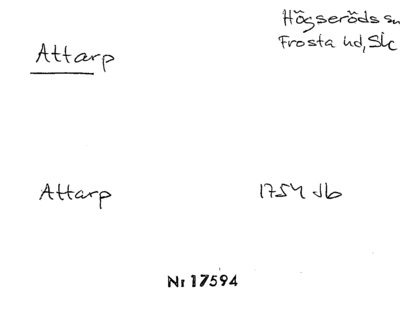 Attarp
Högseröds sn
Frosta hd, Slc
Attarp
1754 Jb
Nr 17594